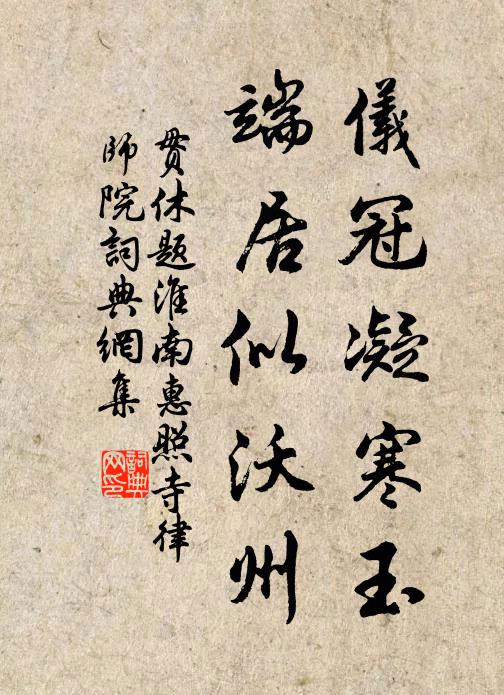 儀冠凝寒玉
端居似沃州
貫休题淮南惠照寺律
師院詞典網集
詞典
网印